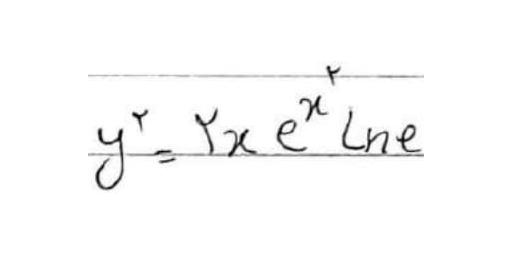 y^۲ = ۲x e^{x^۲} Lne